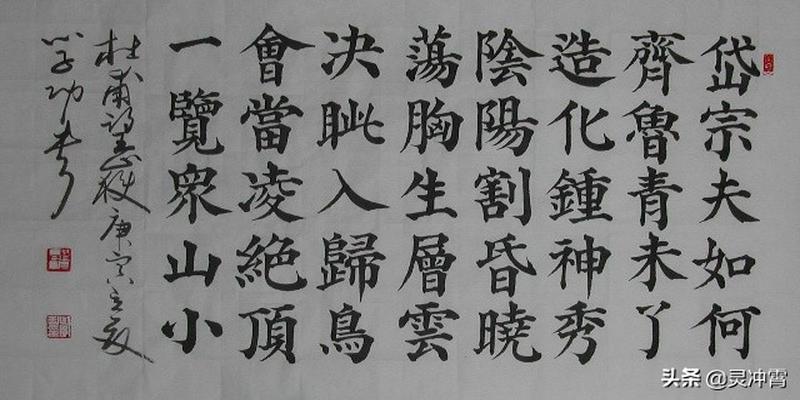 岱宗夫如何
齊魯青未了
造化鍾神秀
陰陽割昏曉
蕩胸生層雲
決眦入歸鳥
會當凌絕頂
一覽衆山小
杜甫詩望嶽庚寅
头条 @灵冲霄